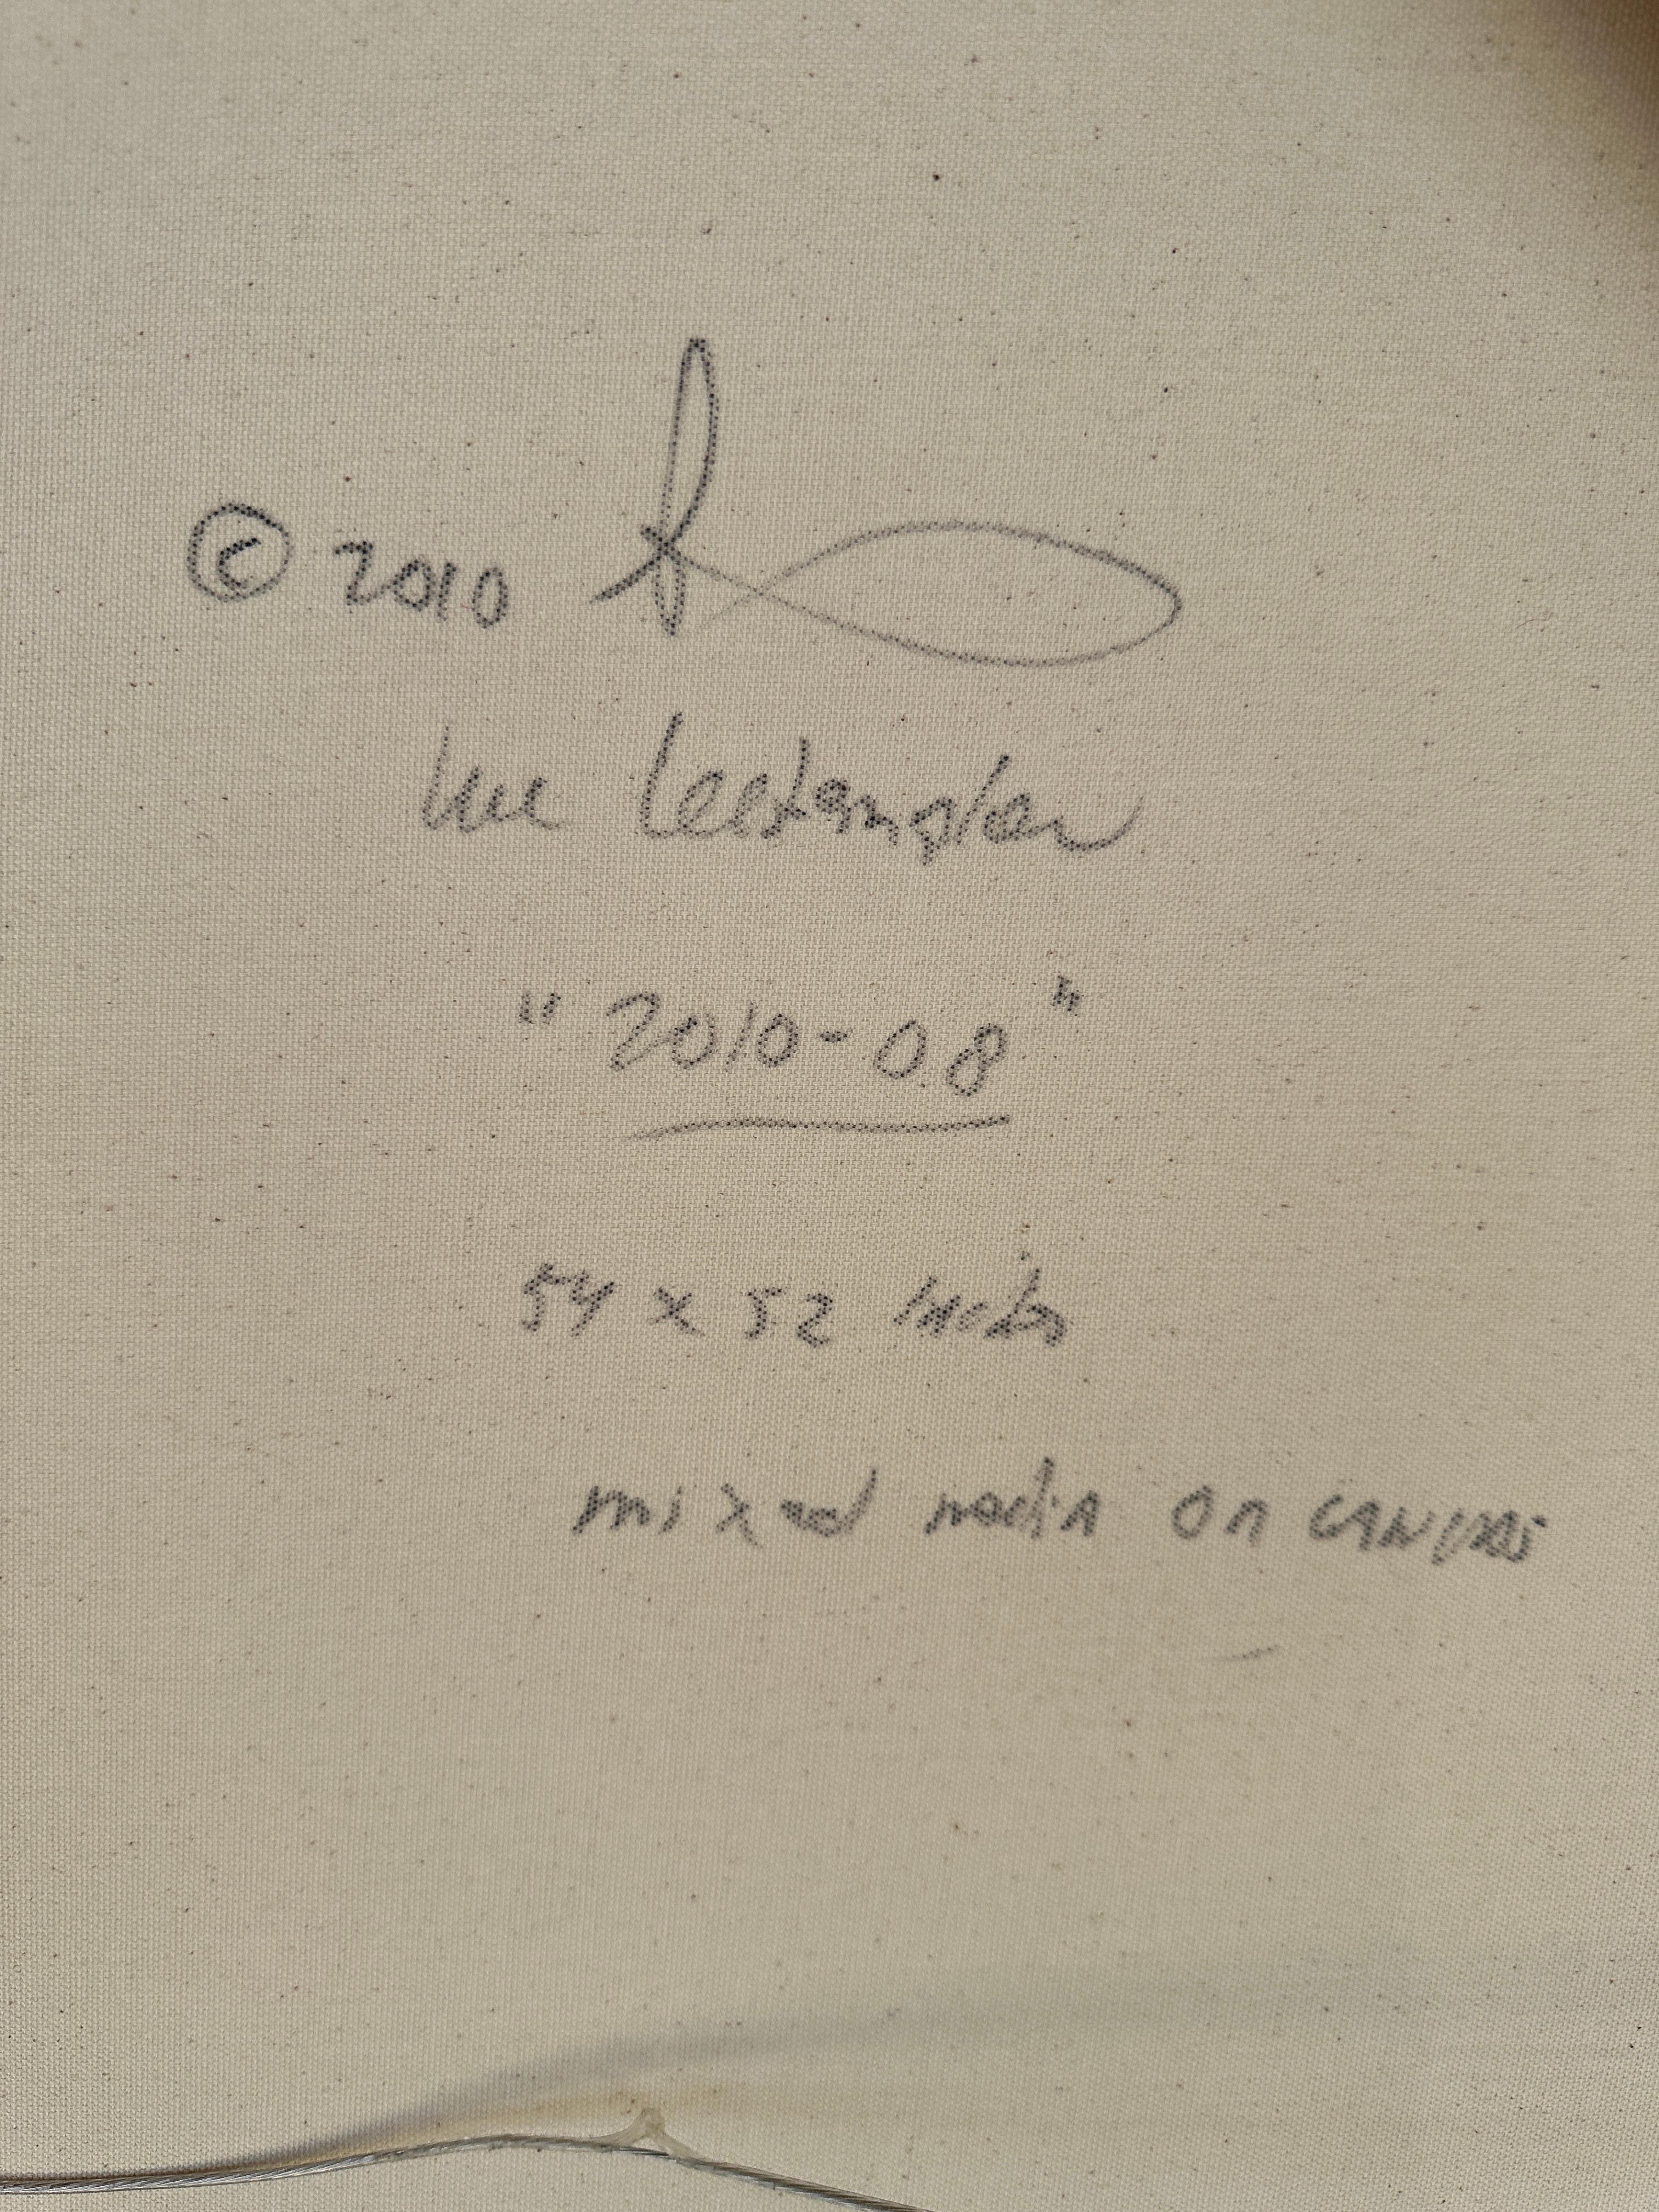 © 2010
Luc Leestemaker
"2010-08"
54 x 52 inches
mixed media on canvas